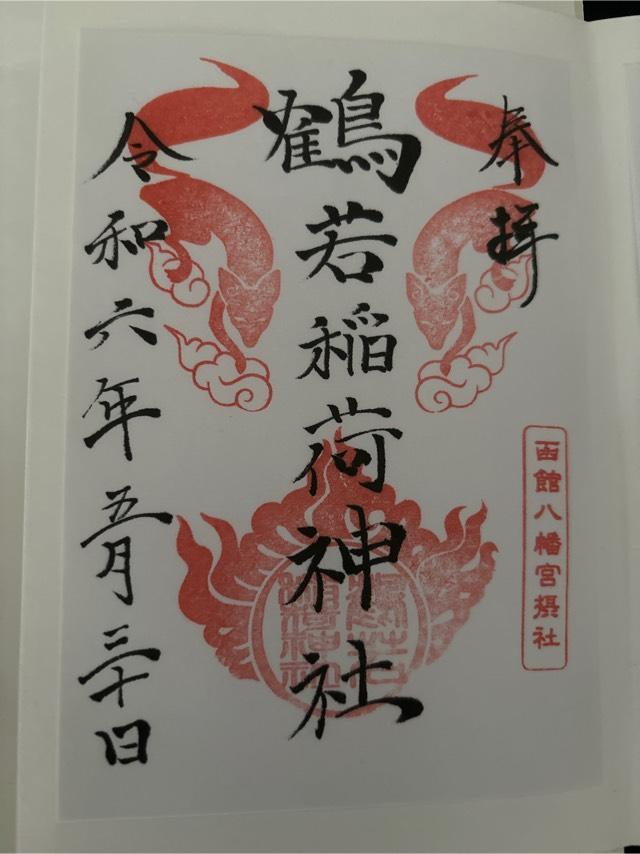 奉拝
函館八幡宮摂社
鶴若稲荷神社
令和六年五月三十日